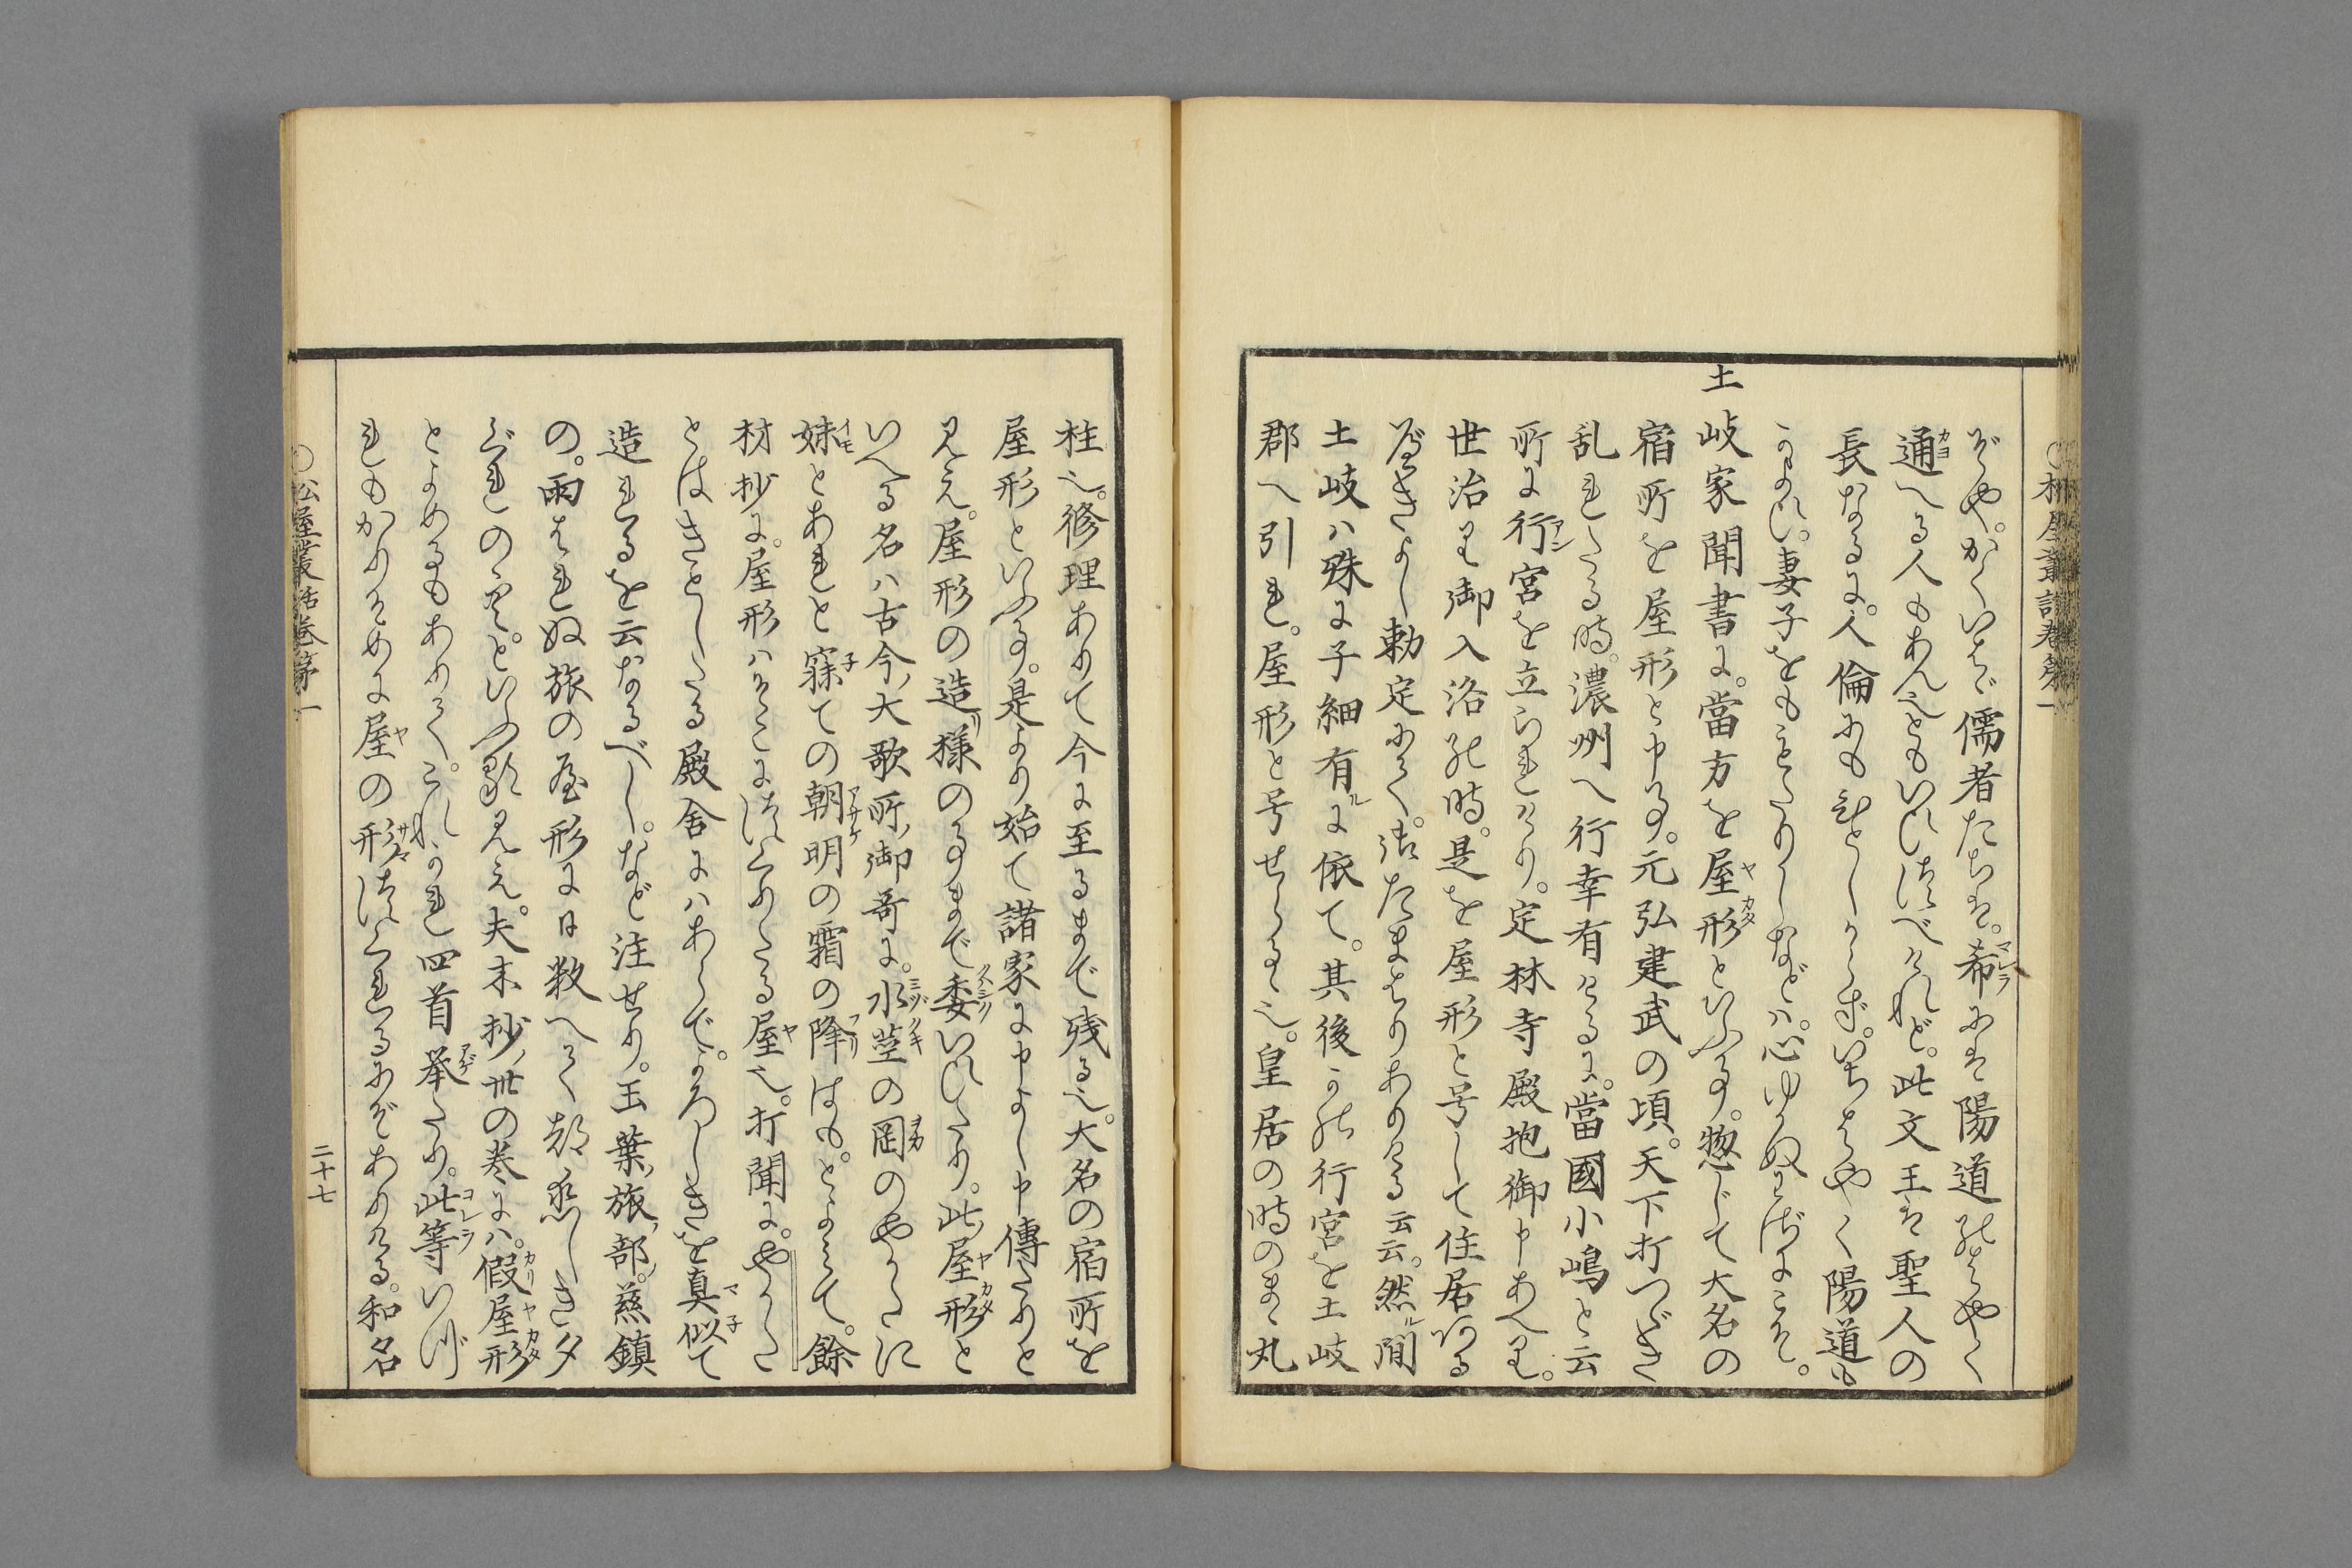 ぞや。かくいはゞ儒者たちは。希には陽道のはやく
通へる人もあんめともいひつべけれど。此文王は聖人の
長なるに。人倫にもひとしからず。いちはやく陽道も
かよひ。妻子をももたりしなどは。心ゆかぬわざにこそ。
土岐家聞書に。當方を屋形といふ事。惣じて大名の
宿所を屋形と申事。元弘建武の頃。天下打つゞき
乱れたる時。濃州へ行幸有けるに。當國小嶋と云
所に行宮を立られけり。定林寺殿抱御申あへり。
世治り御入洛の時。是を屋形と号して住居ある
べきよし勅定にて。
土岐ハ殊に子細有に依て。其後かの行宮を土岐
郡へ引れ。屋形と号せらる也。皇居の時のまゝ丸
柱也。修理ありて今に至るまで残る也。大名の宿所を
屋形といふ事。是より始て諸家に申よし申傳たりと
見え。屋形の造様の事まで委いひたり。此屋形と
いへる名ハ古今大歌所御哥に。水莖の岡のやかたに
妹とあれと寐ての朝明の霜の降はも。とよみて。餘
材抄に。屋形ハけたにつくりたる屋也。打聞に。やかた
とはきとしたる殿舎にハあらで。よろしきを真似て
造れるを云なるべし。など注せり。玉葉旅部。慈鎮
の。雨はれぬ旅の屋形に日数へて都恋しき夕
ぐれの空。といふ歌見え。夫木抄卅の巻にハ。假屋形
とよめるもありて。これかれ四首举たり。此等いづ
れもかりそめに屋の形つくれるにぞありける。和名
〇松屋叢話巻第一
二十七